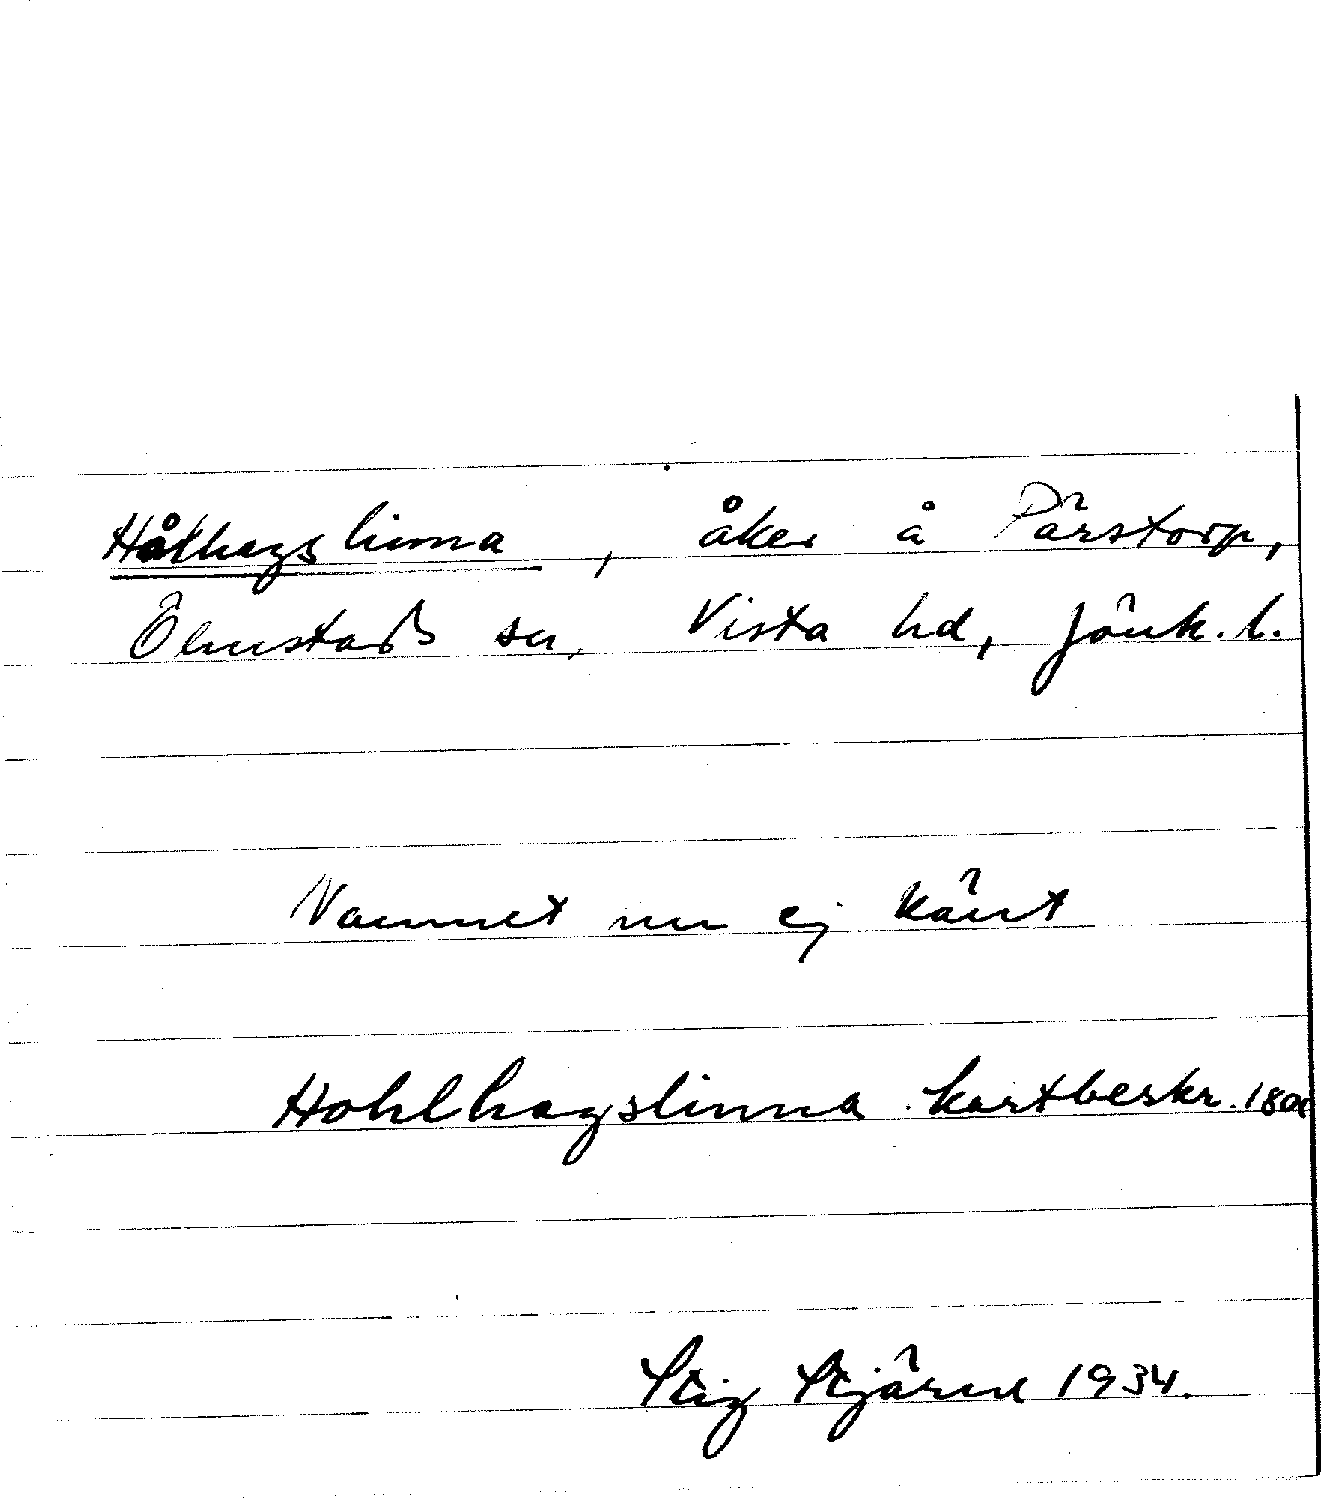 Hålhagslinna, åker å Pärstorp,
Ölmstads sn, Vista hd, Jönk. l.
Namnet nu ej känt
Hohlhagslinna kartbeskr.
Stig Stjärne 1934.